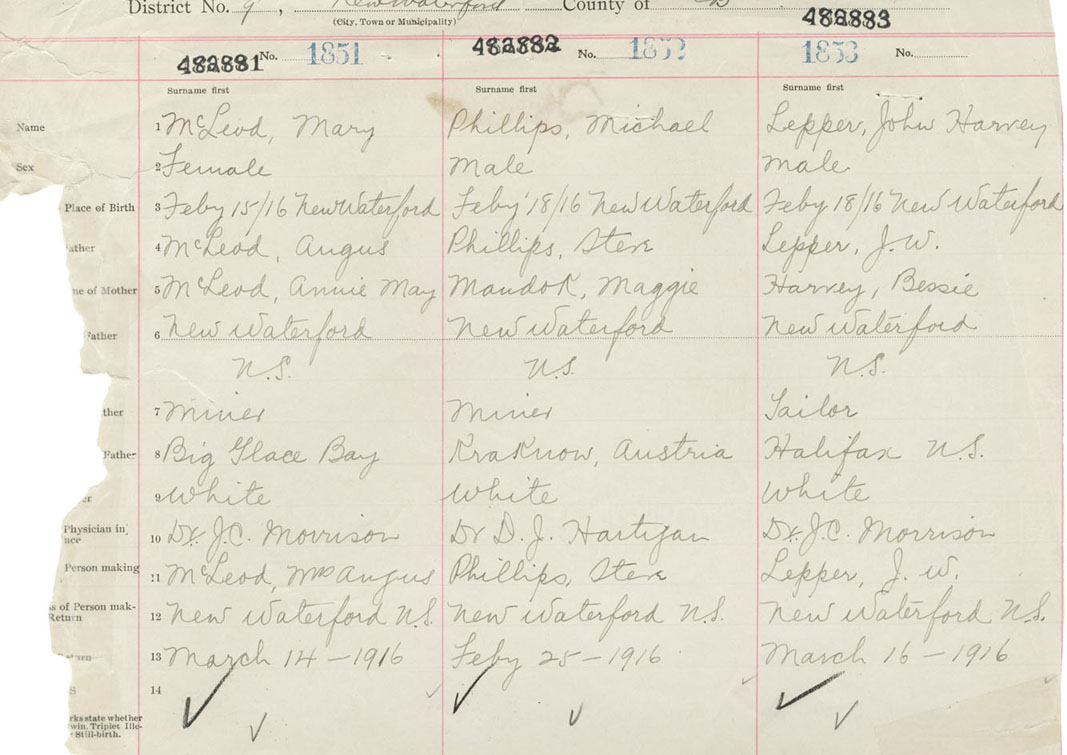 District No. 9, New Waterford County of CB
(City, Town or Municipality)
482881 No. 1851 482882 No. 1852 482883 1853 No.
Surname first Surname first Surname first
Name 1 McLeod, Mary Phillips, Michael Lepper, John Harvey
Sex 2 Female Male Male
Place of Birth 3 Feby 15/16 New Waterford Feby 18/16 New Waterford Feby 18/16 New Waterford
ather 4 McLeod, Angus Phillips, Steve Lepper, J.W.
ne of Mother 5 McLeod, Annie May Mandok, Maggie Harvey, Bessie
Father 6 New Waterford New Waterford New Waterford
N.S. N.S. N.S.
ther 7 Miner Miner Tailor
Father 8 Big Glace Bay Kraknow, Austria Halifax N.S.
er 9 White White White
Physician in
nce 10 Dr. J.C. Morrison Dr D.J. Hartigan Dr. J.C. Morrison
Person making 11 McLeod, Mrs Angus Phillips, Steve Lepper, J.W.
s of Person mak-
Return 12 New Waterford N.S. New Waterford N.S. New Waterford N.S.
13 March 14-1916 Feby 25-1916 March 16-1916
S 14
rks state whether
win. Triplet Ille-
Still-birth.